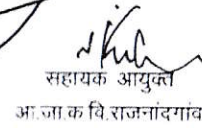 सहायक आयुक्त
आ.जा.क वि.राजनांदगांव